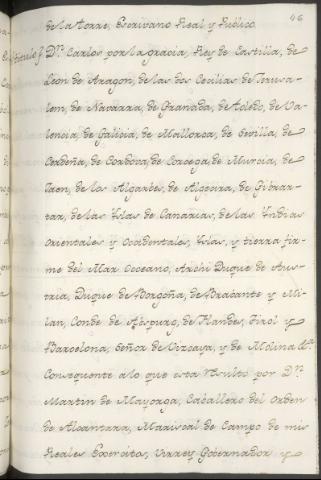 46
de la torre, Escrivano Real y Publico.
Titulo # Dn. Carlos por la gracia, Rey de Castilla, de
Leon de Aragon, de las dos Cecilias de Jerusa-
lem, de Navarra, de Granada, de Toledo, de Va-
lencia, de Galicia, de Mallorca, de Sevilla, de
Cerdeña, de Cordova, de Corcega, de Murcia, de
Jaen, de los Algarbes, de Algecira, de Gibrar-
tar, de las Yslas de Canarias, de las Yndias
orientales y Occidentales, Yslas, y tierra fir-
me del Mar Occeano, Archi Duque de Aus-
tria, Duque de Borgoña, de Bravante y Mi-
lan, Conde de Abspurg, de Flandes, Tirol y
Barcelona, Señor de Vizcaya, y de Molina &a.
Consequente a lo que esta resulto por Dn.
Martin de Mayorga, Caballero del Orden
de Alcantara, Mariscal de Campo de mis
Reales Exercitos, Virrey Governador y